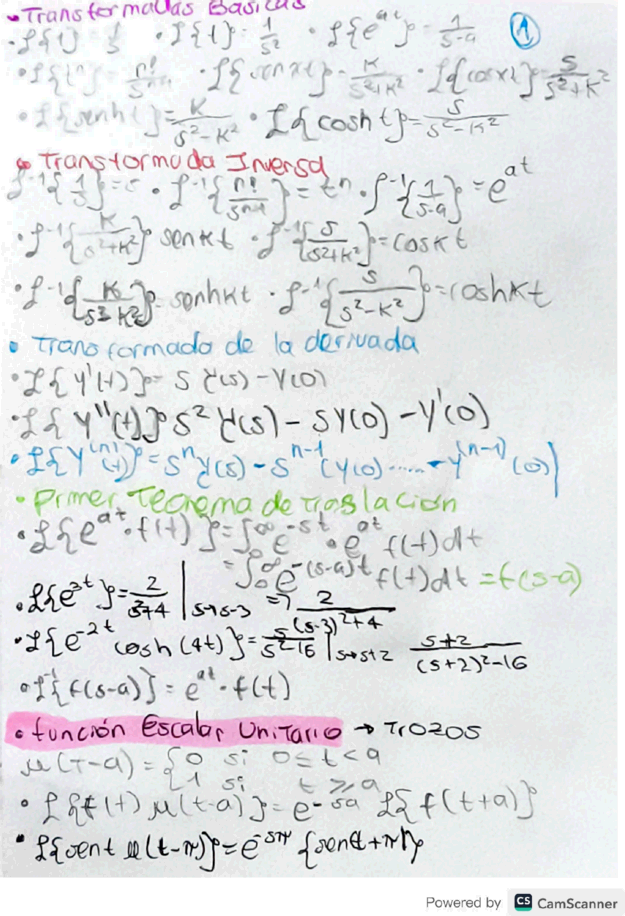 • Transformadas Básicas
• ℒ{1} = 1/s • ℒ{t} = 1/s² • ℒ{e^at} = 1/(s-a) ①
• ℒ{tⁿ} = n!/sⁿ⁺¹ • ℒ{sen kt} = K/(s²+K²) • ℒ{cos kt} = s/(s²+K²)
• ℒ{senh t} = K/(s²-K²) • ℒ{cosh t} = s/(s²-K²)
• Transformada Inversa
ℒ⁻¹{1/s} = • ℒ⁻¹{n!/sⁿ⁺¹} = tⁿ • ℒ⁻¹{1/(s-a)} = e^at
• ℒ⁻¹{K/(s²+K²)} senkt • ℒ⁻¹{s/(s²+K²)} = cosKt
• ℒ⁻¹{K/(s²-K²)} = senhkt • ℒ⁻¹{s/(s²-K²)} = coshKt
• Transformado de la derivada
• ℒ{y'(t)} = s Y(s) - Y(0)
• ℒ{y''(t)} s² Y(s) - sY(0) - Y'(0)
• ℒ{Y⁽ⁿ⁾(t)} = sⁿY(s) - sⁿ⁻¹(y(0)..... - y⁽ⁿ⁻¹⁾(0)
• Primer Teorema de traslación
• ℒ{e^at · f(t)} = ∫₀^∞ e^-st · e^at f(t)dt
= ∫₀^∞ e^-(s-a)t f(t)dt = f(s-a)
• ℒ{e^3t } = 2/(s²+4) | s→s-3 => 2/((s-3)²+4)
• ℒ{e^-2t cosh(4t)} = s/(s²-16) | s→s+2 (s+2)/((s+2)²-16)
• ℒ⁻¹{f(s-a)} = e^at · f(t)
• función Escalar Unitario → Trozos
μ(t-a) = {0 si 0≤t<a
1 si t≥a
• ℒ{f(t) μ(t-a)} = e^-sa ℒ{f(t+a)}
• ℒ{sent u(t-π)} = e^-sπ {sen(t+π)}
Powered by CS CamScanner